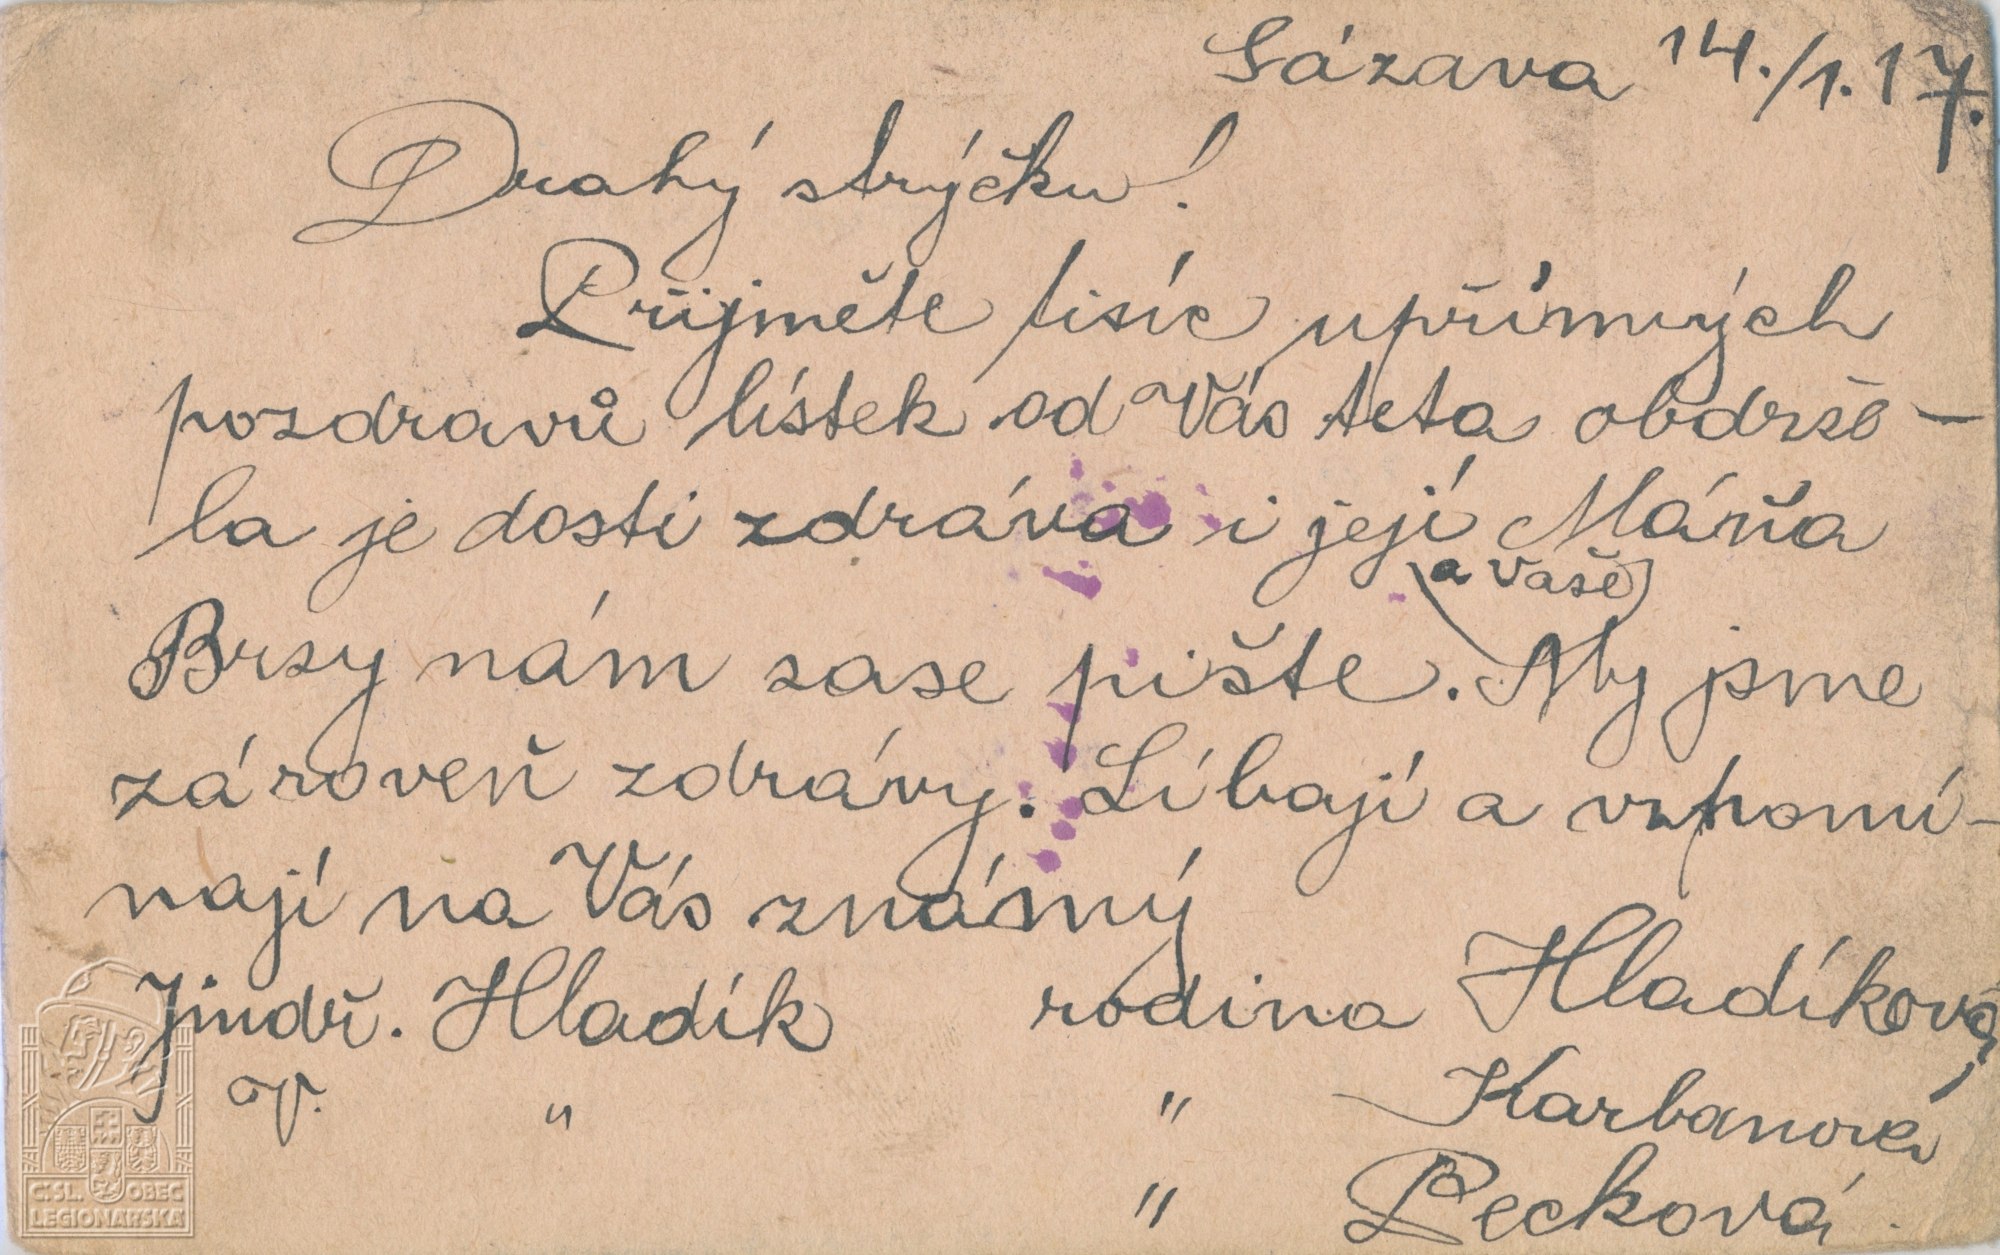 Sázava 14./1. 17.
Drahý strýčku!
Přijměte tisíc upřímných
pozdravů lístek od Vás teta obdrže-
la je dosti zdráva i její Máňa
a vaše
Brzy nám zase pište. My jsme
zároveň zdrávy. Líbají a vzpomí-
nají na Vás známý
Jindř. Hladík rodina Hladíková
" " Karbanová
" Pecková
C.SL. OBEC
LEGIONÁŘSKÁ